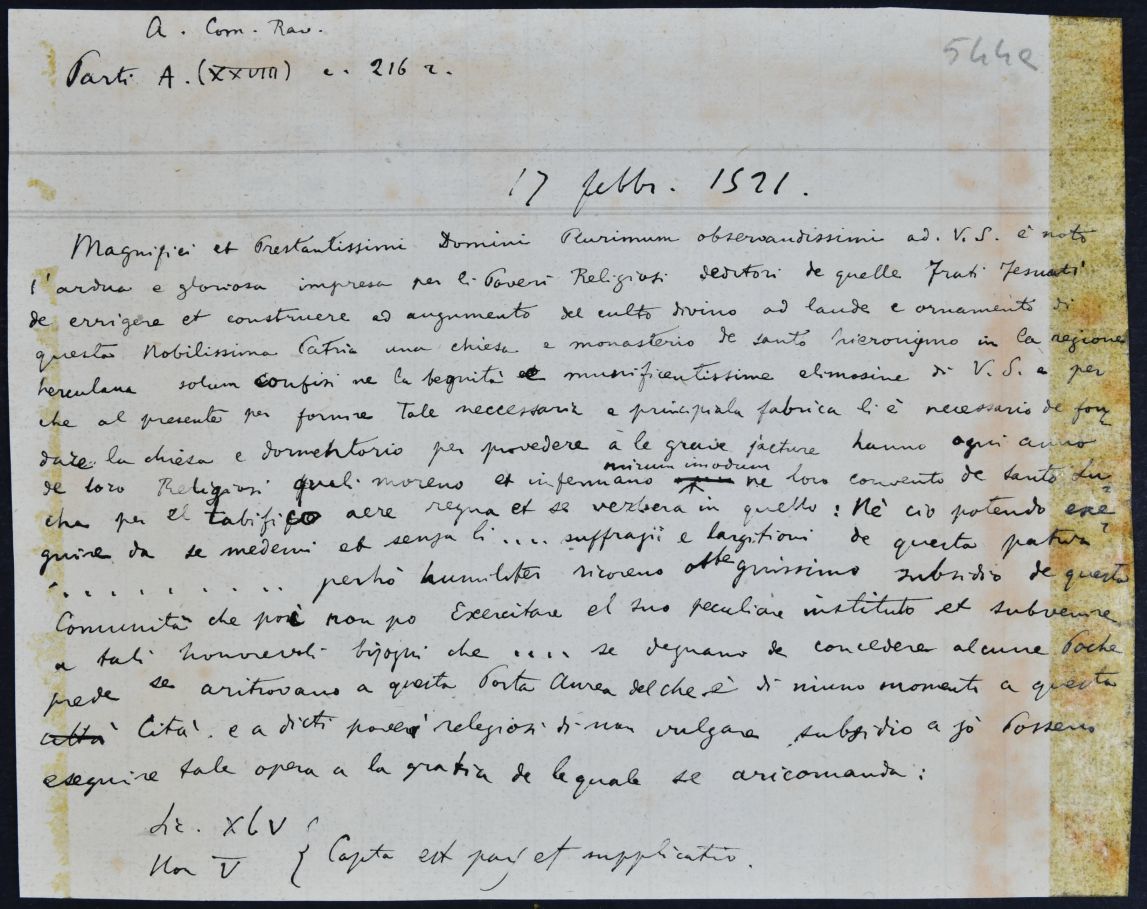 A. Com. Rav.
Parti A. (XXVIII) c. 216 r.
544e
17 febbr. 1521.
Magnifici et Prestantissimi Domini Plurimum observandissimi ad. V. S. è noto
l'ardua e gloriosa impresa per li Poveri Religiosi deditori de quelle Frati Jesuati
de errigere et construere ad augumento del culto divino ad laude e ornamento di
questa Nobilissima Patria una chiesa e monasterio de santo hieronimo in la regione
herculana solum confisi ne la begnità et munificentissime elimosine di V. S. e per
che al presente per fornire tale neccessaria e principiala fabrica li è necessario de fon
dare la chiesa e dormentorio per provedere à le grave jacture hanno ogni anno
de loro Religiosi queli moreno et infermano mirum imodum ne loro convento de santo Lu
cha per el tabifico aere regna et se verbera in quello: Nè cio potendo exe
guire da se medemi et senza li .... suffragii e largitioni de questa patria
........... perhò humiliter ricoreno subsidio de questa
Comunità che poi non po Exercitare el suo peculiare instituto et subvenire
a tali honorevoli bisogni che .... se degnano de concedere alcune Poche
prede se aritrovano a questa Porta Aurea del che è di niuno momento a questa
città Cità. e a dicti poveri relegiosi di non vulgare subsidio a jò Posseno
eseguire tale opera a la gratia de lequale se aricomanda:
Sic. XLV
Non V } Capta est pars et supplicatio.